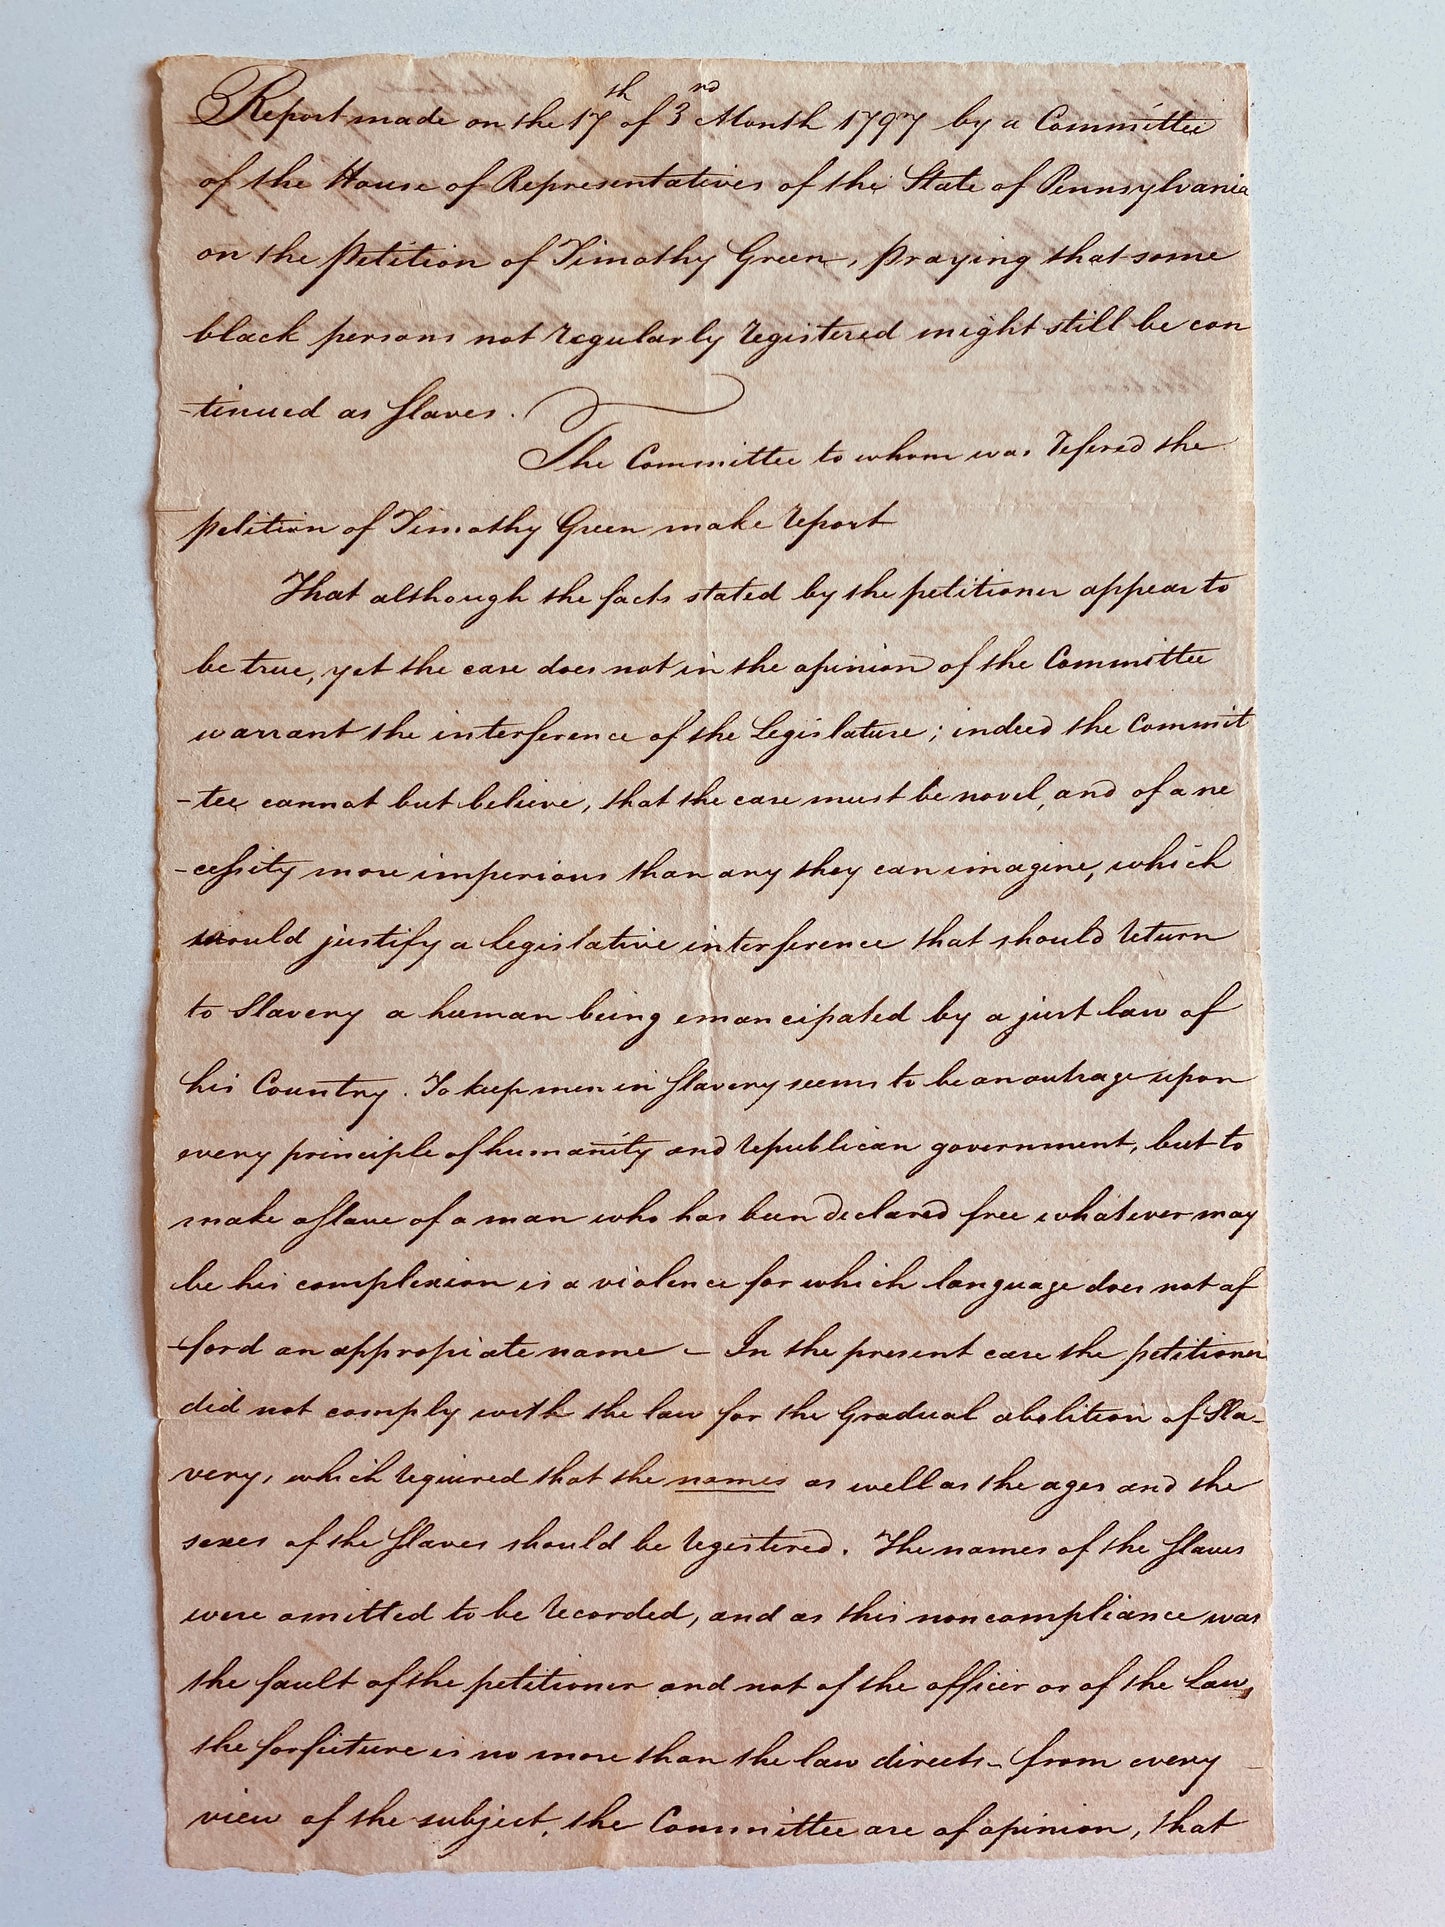 Report made on the 17th of 3rd Month 1797 by a Committee
of the House of Representatives of the State of Pennsylvania
on the petition of Timothy Green, praying that some
black persons not regularly registered might still be con
-tinued as Slaves.
The Committee to whom was refered the
petition of Timothy Green make report
That although the facts stated by the petitioner appear to
be true, yet the case does not in the opinion of the Committee
warrant the interference of the Legislature; indeed the Commit
-tee cannot but believe, that the case must be novel, and of a ne
-cessity more imperious than any they can imagine, which
would justify a legislative interference that should return
to Slavery a human being emancipated by a just law of
his Country. To keep men in Slavery seems to be an outrage upon
every principle of humanity and republican government, but to
make a Slave of a man who has been declared free whatever may
be his complexion is a violence for which language does not af
-ford an appropiate name – In the present case the petitioner
did not comply with the law for the Gradual abolition of Sla-
very, which required that the names as well as the ages and the
sexes of the Slaves should be registered. The names of the Slaves
were omitted to be recorded, and as this noncompliance was
the fault of the petitioner and not of the officer or of the Law,
the forfieture is no more than the law directs – from every
view of the subject, the Committee are of opinion, that